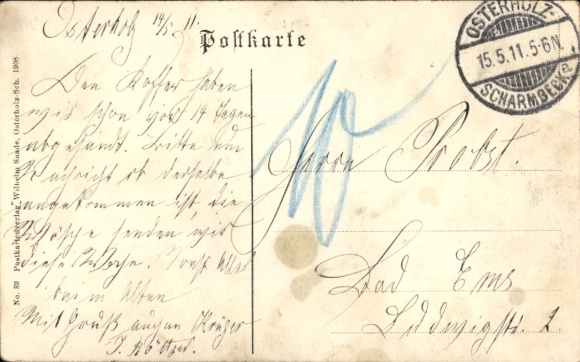 Osterholz 14/5. 11.
Postkarte
OSTERHOLZ-
15.5.11.5-6N.
SCHARMBECK
Den Koffer haben
wir schon vor 14 Tagen
abgesandt. Bitte um
Nachricht ob derselbe
angekommen ist, die
Wäsche senden wir
diese Woche. Sonst alles
beim Alten
Mit Gruß
10
Herrn Probst.
Bad Ems
Ludwigstr. 2.
No. 89 Postkartenverlag Wilhelm Saade, Osterholz-Sch. 1908